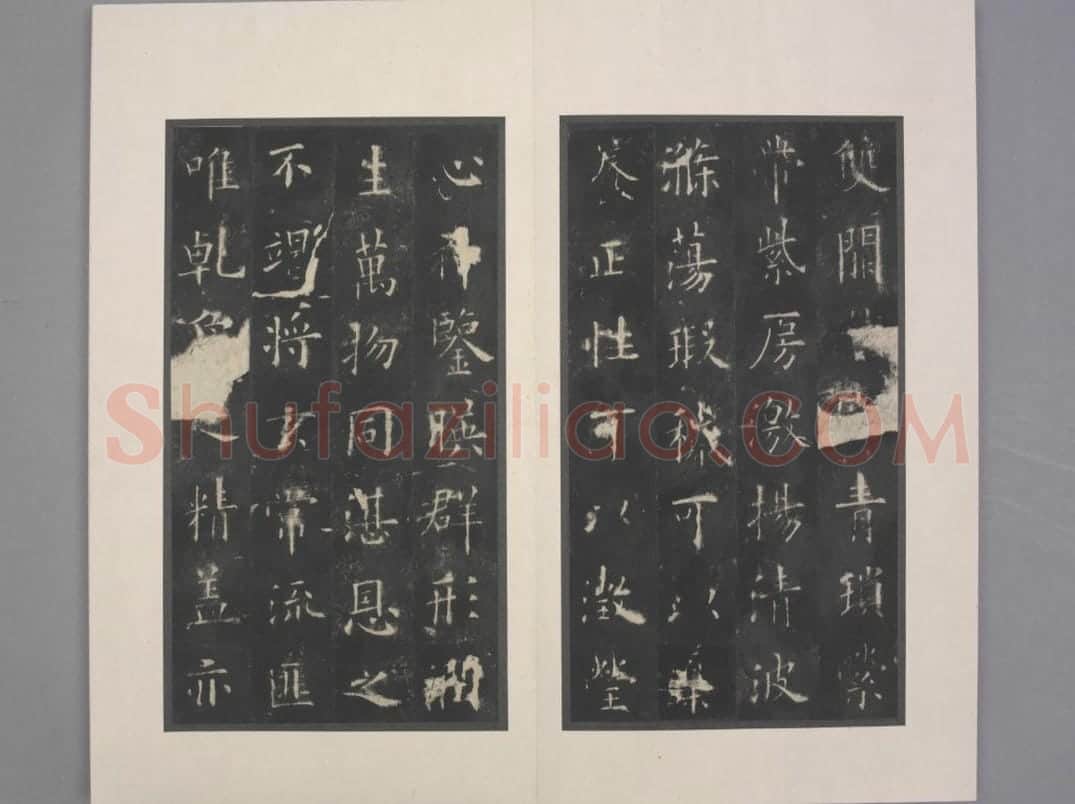 雙闕青瑣縈
帶紫房激揚清波
滌蕩瑕穢可以導
養正性可以澂瑩
心神鑒暎群形潤
生萬物同湛恩之
不竭將玄常流匪
唯乾象之精盖亦
Shufaziliao.COM